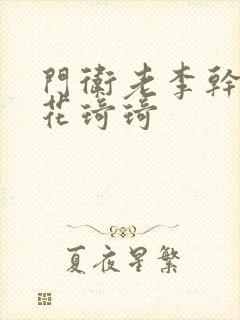 門衛老李幹
花琦琦
夏夜星繁